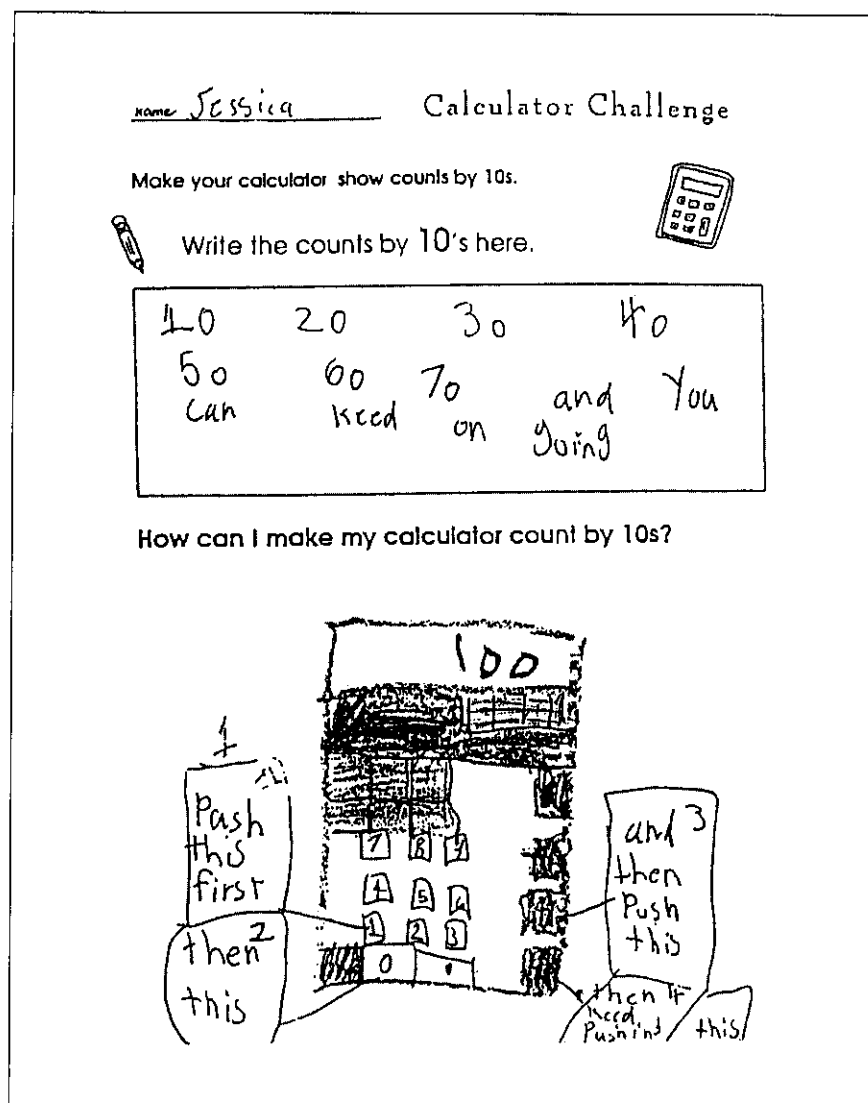 Name Jessica Calculator Challenge
Make your calculator show counts by 10s.
Write the counts by 10's here.
10 20 30 40
50 60 70 and You
can keed on going
How can I make my calculator count by 10s?
100
1
Pash
this
first
then 2
this
7 8 9
4 5 6
1 2 3
0 .
and 3
then
Push
this
then 4
keed
Pushing this